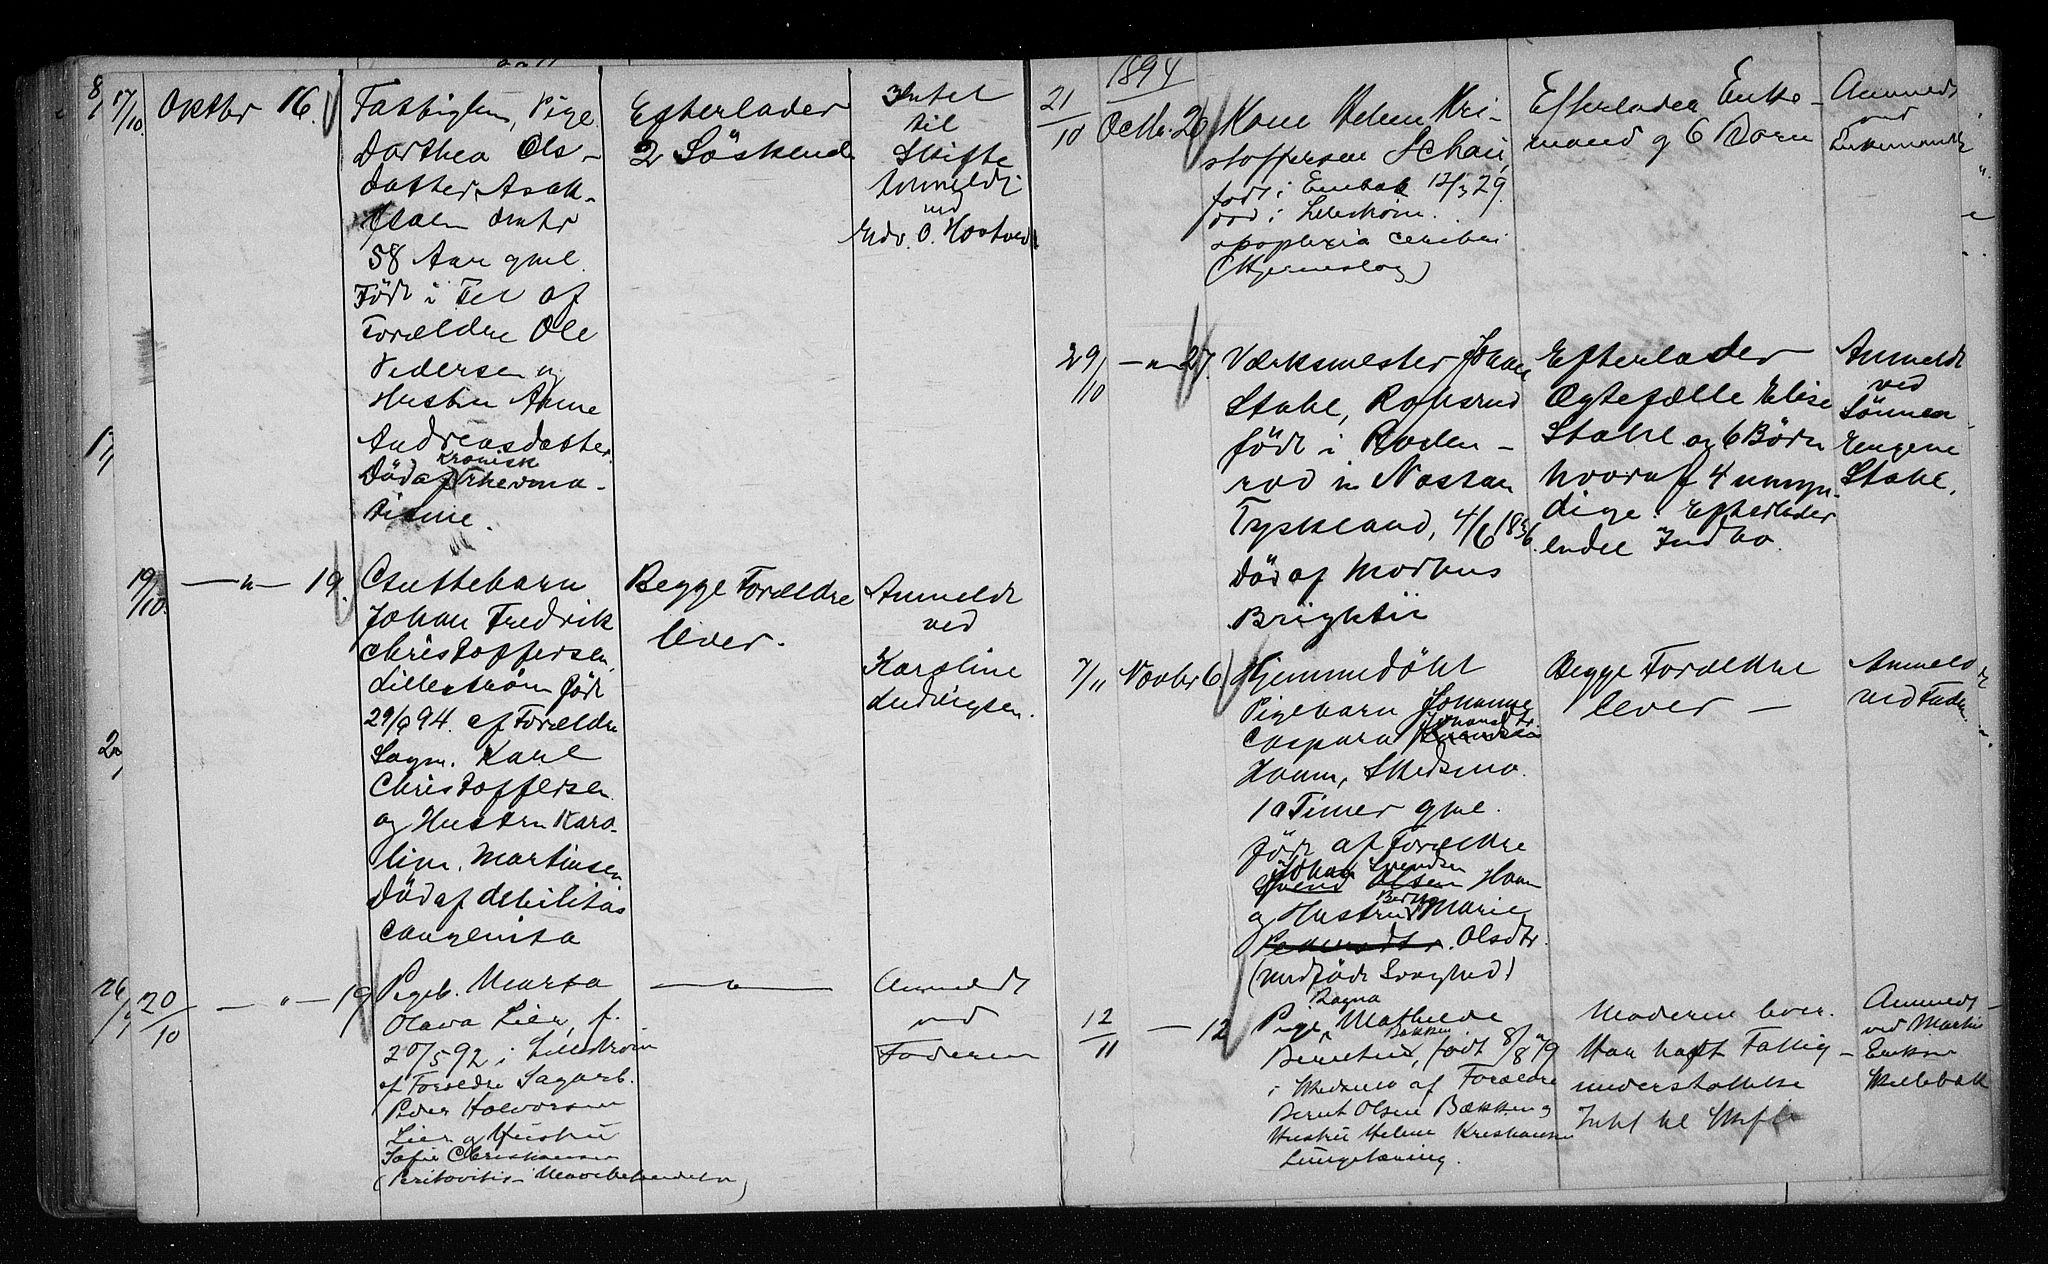 17/10. Oktbr 16.
Fattiglem, Pige
Dorthea Ols-
datter Asak-
omtr
58 Aar gml.
Född i Fet af
Forældre Ole
Pedersen og
Hustru Anne
Andreasdatter.
Död af kronisk
Rheuma-
tisme.
Efterlader
2 Söskende
Intet
til
Skifte
Anmeldt
ved
O. Hostvedt
19/10. —"— 19.
Guttebarn
Johan Fredrik
Christoffersen,
Lilleström född
29/9 94. af Forældre
Sagm. Karl
Christoffersen
og Hustru Karo-
line Martinsen
Död af debilitas
congenita
Begge Forældre
lever.
Anmeldt
ved
Karoline
Ludvigsen.
20/10 —"— 19
Pigeb. Marta
Olava Lier, f.
20/5 92 i Lillestrøm
af Forældre Sagarb.
Peder Halvorsen
Lier og Hustru
Sofie Christiansen
—"—
Anmeldt
ved
Faderen
1894
21/10 Octbr. 20
Kone Helene Kri-
stoffersen
født i Enebak 12/3 29.
død i Lillestrøm.
apoplexia cerebri
(Hjerneslag)
Efterlader Enke-
mand og 6 Børn
Anmeldt
ved
Enkemanden
29/10 —"— 27.
Værksmester Johan
Stahl,
född i Roden-
rod in Nassau
Tyskland, 4/6 1836.
Död af Morbus
Brightii
Efterlader
Ægtefælle Elise
Stahl og 6 Börn
hvoraf 4 umyn-
dige. Efterlader
endel Indbo.
Anmeldt
ved
Sönnen
Eugene
Stahl.
7/11 Novbr 6
Hjemmedöbt
Pigebarn Johanne
Caspara Johansdtr.
Haam, Skedsmo.
10 Timer gml.
född af Forældre
Johan Svendsen
Svend Olsen Haam
og Hustru Berthe Marie
Pedersdtr. Olsdtr.
(medfödt Svaghed)
Begge Forældre
lever —
Anmeldt
ved Fader
12/11 — 12
Pige Ragna Mathilde
Berntsen Bakken, født 8/8 79
i Skedsmo af Forældre
Bernt Olsen Bækken og
Hustru Helene Kristiansen
Lungetæring.
Moderen lever.
Har havt Fattig-
understøttelse
Intet til Skifte
Anmeldt
ved Martin
Eriksen